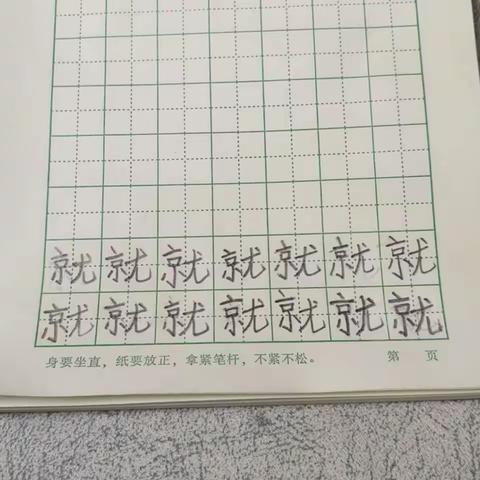 就就就就就就就
就就就就就就就
身要坐直，纸要放正，拿紧笔杆，不紧不松。 第 页